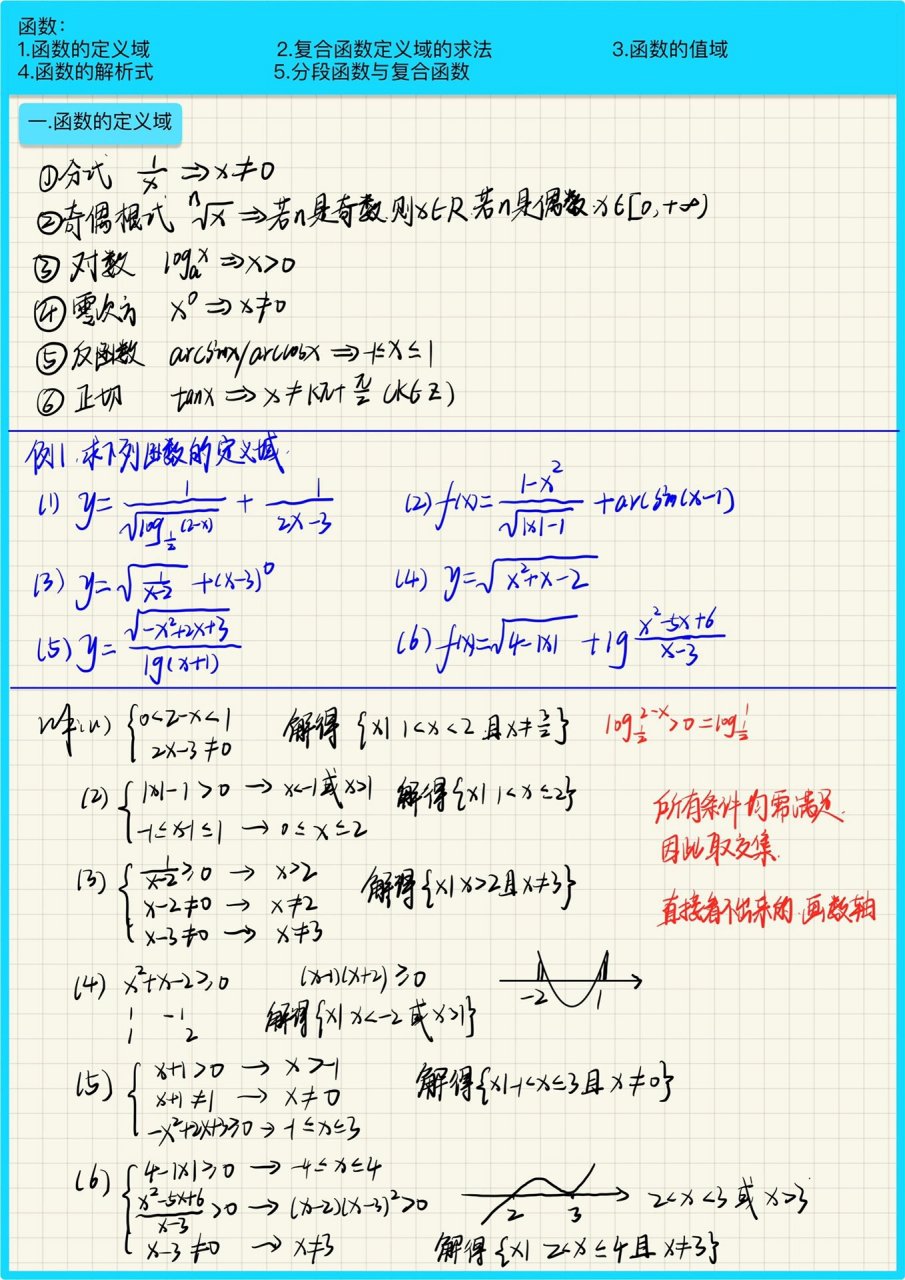 函数：
1.函数的定义域 2.复合函数定义域的求法 3.函数的值域
4.函数的解析式 5.分段函数与复合函数
一.函数的定义域
①分式 1/x ⇒ x≠0
②奇偶根式 ⁿ√x ⇒ 若n是奇数,则x∈R,若n是偶数,x∈[0,+∞)
③对数 logₐx ⇒ x>0
④零次方 x⁰ ⇒ x≠0
⑤反函数 arcsinx/arccosx ⇒ -1≤x≤1
⑥正切 tanx ⇒ x≠kπ+π/2 (k∈Z)
例1.求下列函数的定义域.
(1) y=1/√(log_{1/2}(2-x)) + 1/(2x-3) (2) f(x)=(1-x²)/√(|x|-1) +arcsin(x-1)
(3) y=√(1/(x-2)) +(x-3)⁰ (4) y=√(x²+x-2)
(5) y=√(-x²+2x+3)/lg(x+1) (6) f(x)=√(4-|x|) +lg (x²-5x+6)/(x-3)
解:(1) {0<2-x<1 解得 {x|1<x<2且x≠3/2} log_{1/2}(2-x)>0=log_{1/2}1
2x-3≠0
(2) {|x|-1>0 → x<-1或x>1 解得{x|1<x≤2}
-1≤x-1≤1 → 0≤x≤2
所有条件均需满足.
因此取交集.
(3) {1/(x-2)≥0 → x>2 解得{x|x>2且x≠3}
x-2≠0 → x≠2
x-3≠0 → x≠3
直接看不出来的,画数轴
(4) x²+x-2≥0 (x-1)(x+2)≥0 -2 1
1 -1 解得{x|x<-2或x>1}
1 2
(5) {x+1>0 → x>-1 解得{x|-1<x≤3且x≠0}
x+1≠1 → x≠0
-x²+2x+3≥0 → -1≤x≤3
(6) {4-|x|≥0 → -4≤x≤4
(x²-5x+6)/(x-3)>0 → (x-2)(x-3)²>0 2 3 2<x<3或x>3
x-3≠0 → x≠3 解得{x|2<x≤4且x≠3}